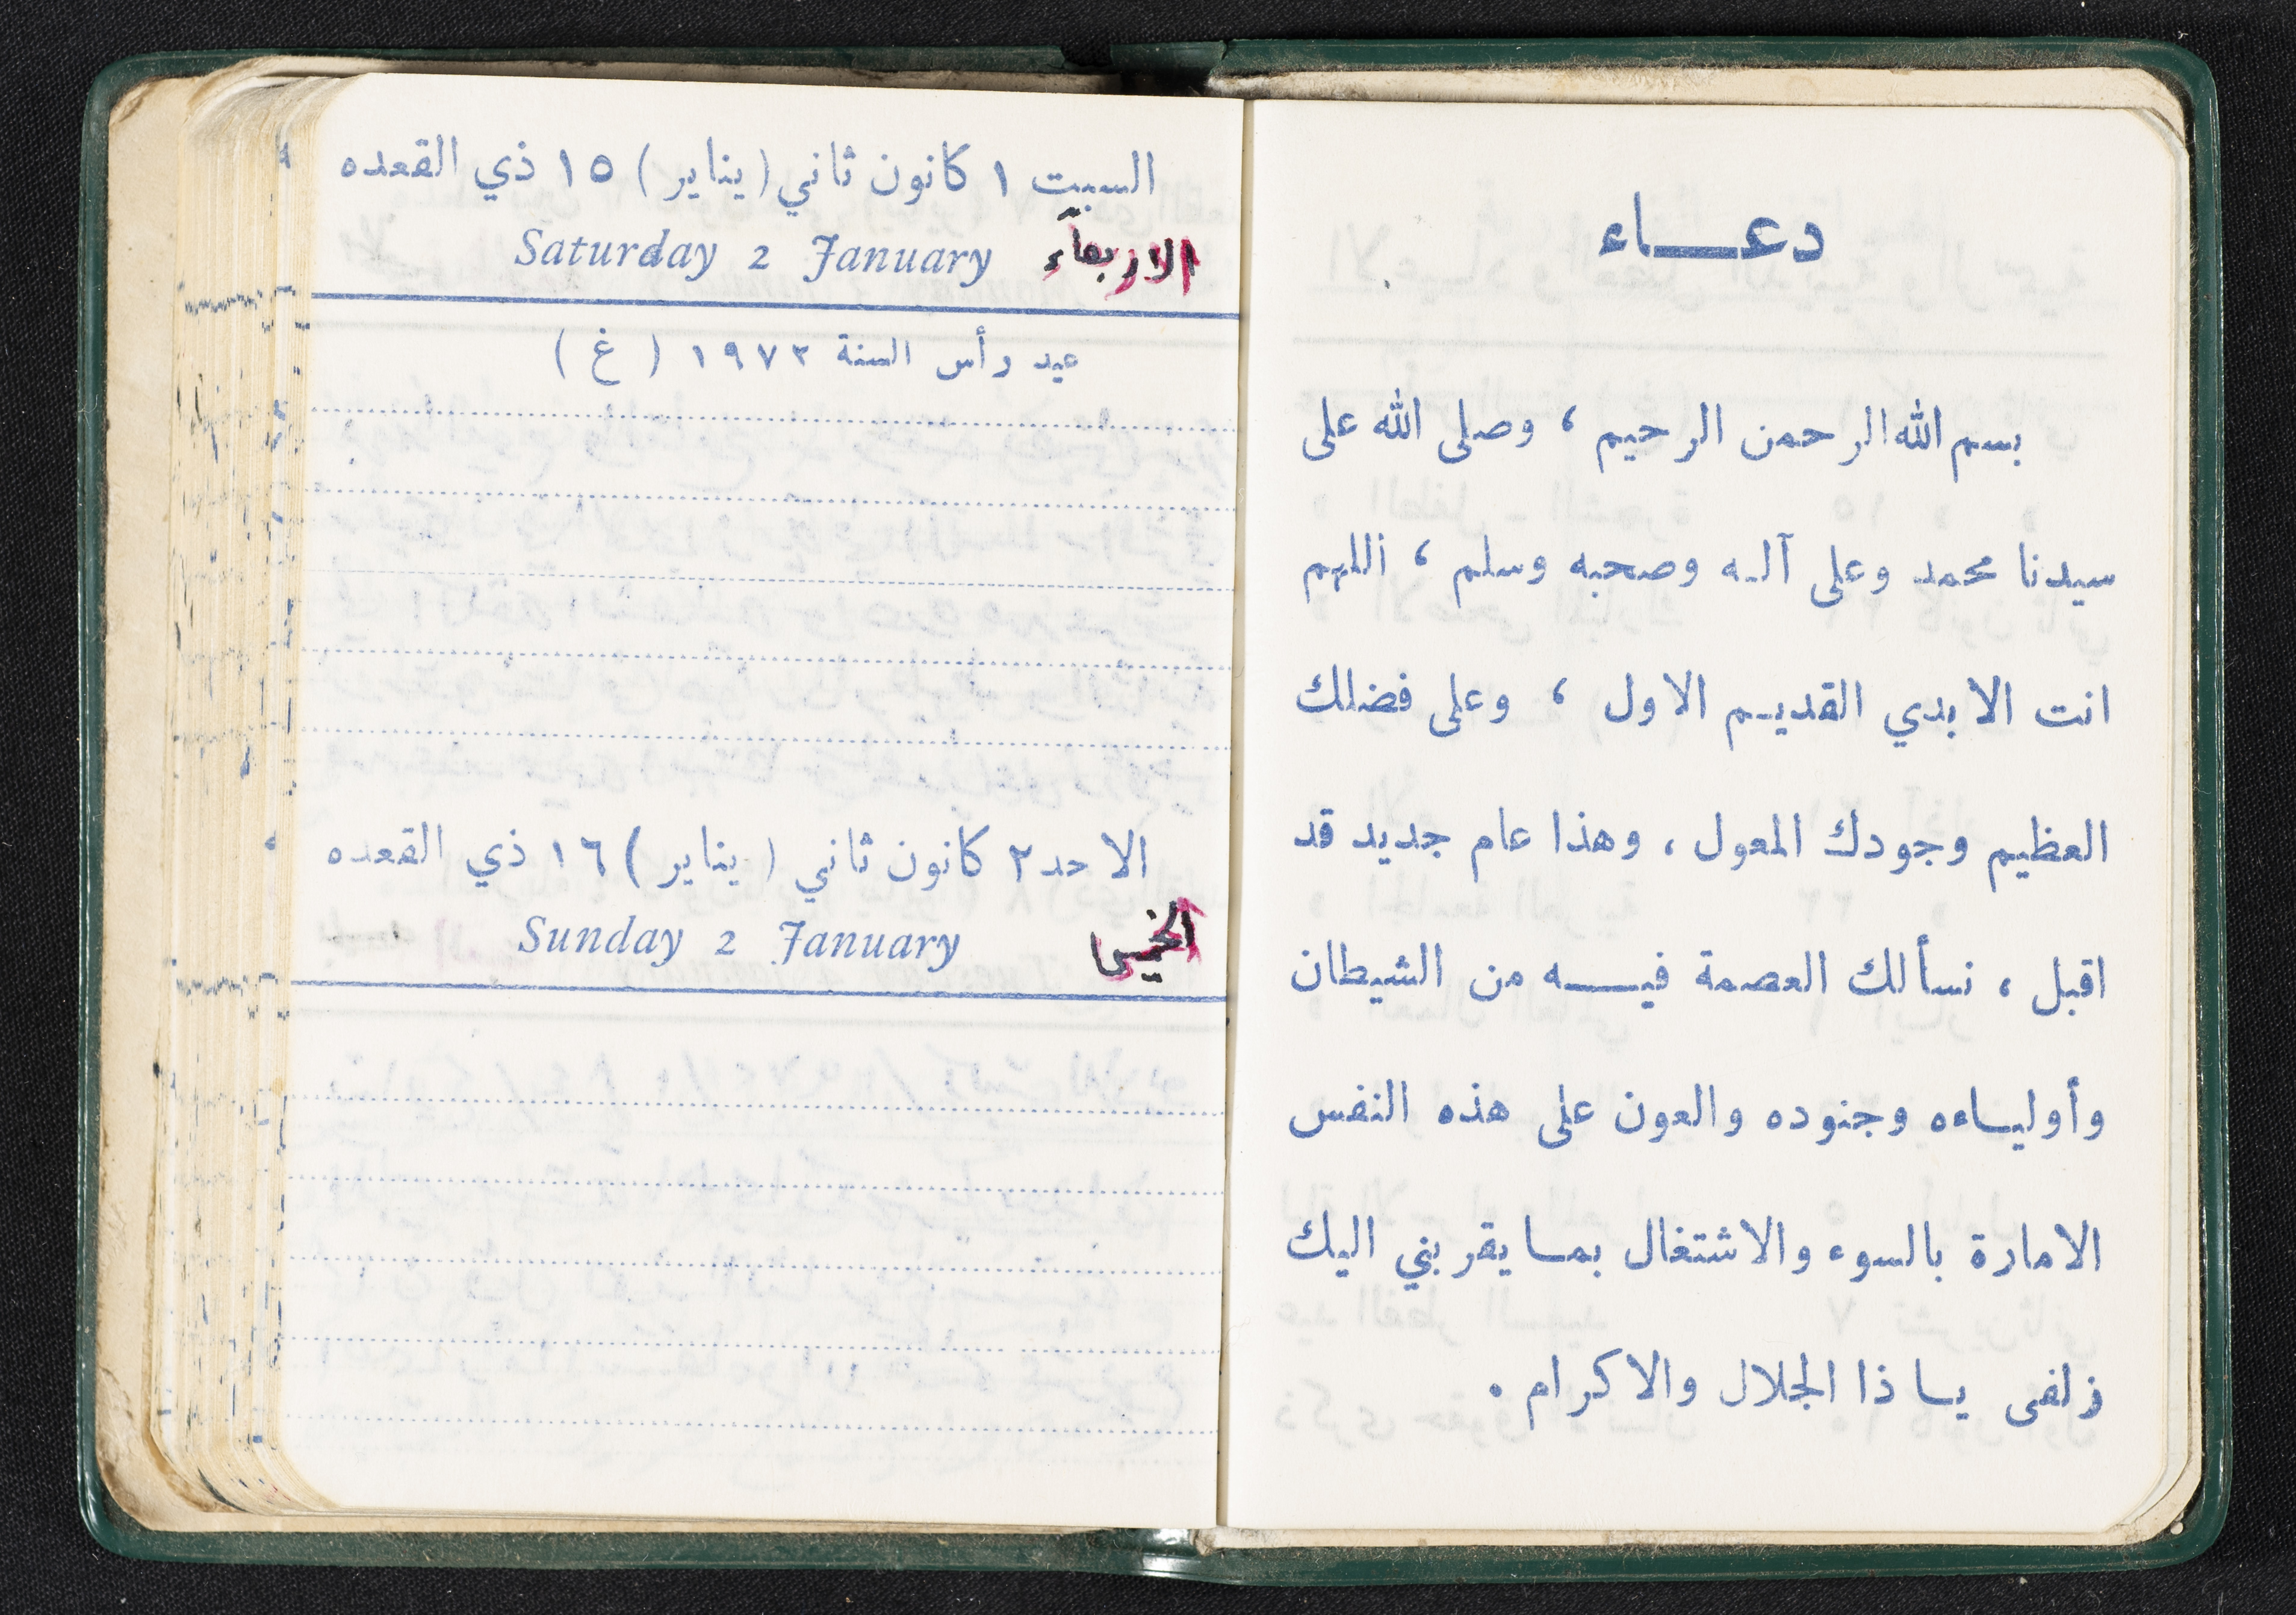 دعـــاء
بسم الله الرحمن الرحيم ، وصلى الله على
سيدنا محمد وعلى آلـه وصحبه وسلم ، اللهم
انت الابدي القديـم الاول ، وعلى فضلك
العظيم وجودك المعول ، وهذا عام جديد قد
اقبل ، نسألك العصمة فيـــه من الشيطان
وأوليـاءه وجنوده والعون على هذه النفس
الامارة بالسوء والاشتغال بمـا يقربني اليك
زلفى يـا ذا الجلال والاكرام .
السبت ١ كانون ثاني (يناير) ١٥ ذي القعده
Saturday 2 January الاربعاء
عيد رأس السنة ١٩٧٢ ( غ )
الاحد ٢ كانون ثاني (يناير) ١٦ ذي القعده
Sunday 2 January الخميس